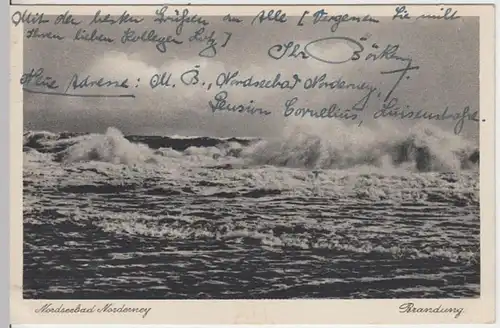 Mit den besten Grüßen an Alle [Vergessen Sie nicht
Ihren lieben Kollegen Lutz]
Ihr Börken
Neue Adresse: M. B., Nordseebad Norderney,
Pension Cornelius, Luisenstraße.
Nordseebad Norderney
Brandung.